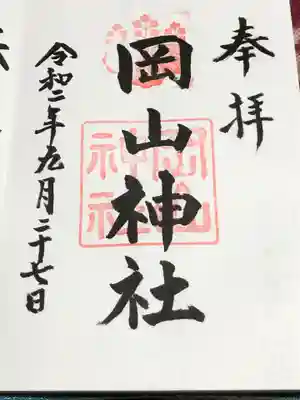 奉拝
岡山神社
岡山神社
令和二年九月二十七日